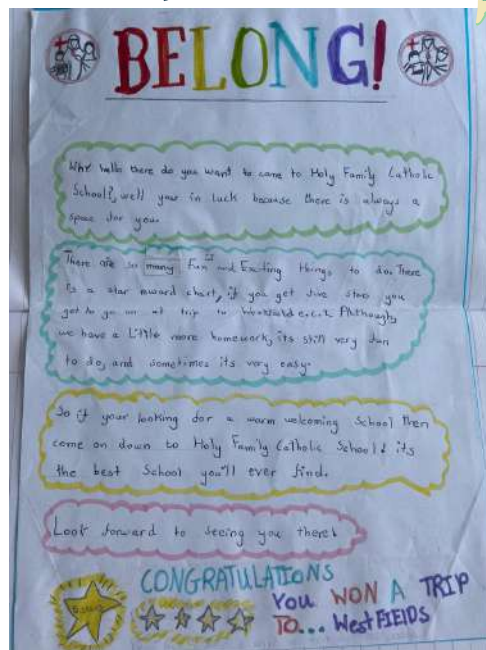 BELONG!
Why hello there do you want to come to Holy Family Catholic
School?, well your in luck because there is always a
space for you.
There are so many Fun and Exciting things to do. There
is a star award chart, if you get five stars you
get to go on a trip to Westfield e.c.t. Although,
we have a little more homework, its still very fun
to do, and sometimes its very easy.
So if your looking for a warm welcoming School then
come on down to Holy Family Catholic School! its
the best School you'll ever find.
Look forward to seeing you there!
CONGRATULATIONS
YOU WON A TRIP
TO... WestFIElDS